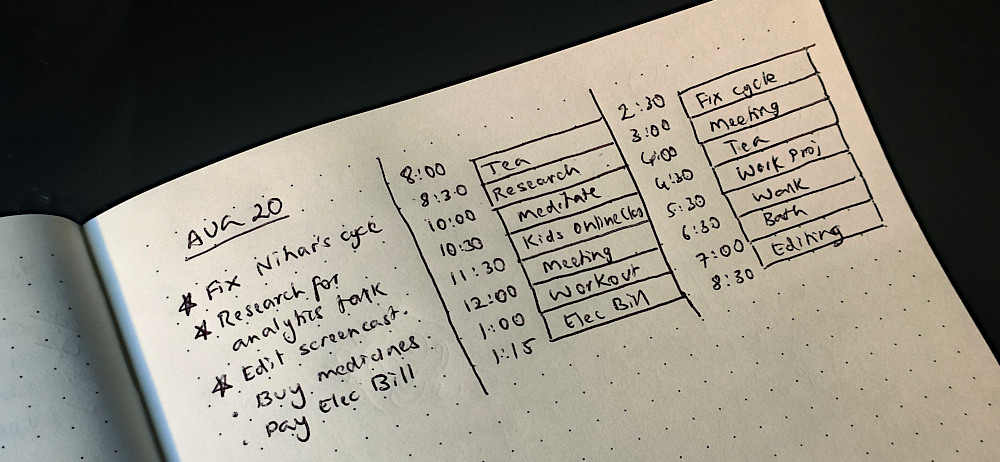 AUG 20
* Fix Nihar's cycle
* Research for
analytics talk
* Edit screencast.
· Buy medicines.
· Pay Elec Bill
8:00
Tea
8:30
Research
10:00
meditate
10:30
Kids online Clas
11:30
meeting
12:00
Workout
1:00
Elec Bill
1:15
2:30
Fix cycle
3:00
meeting
4:00
Tea
4:30
Work Proj
5:30
Walk
6:30
Bath
7:00
Editing
8:30